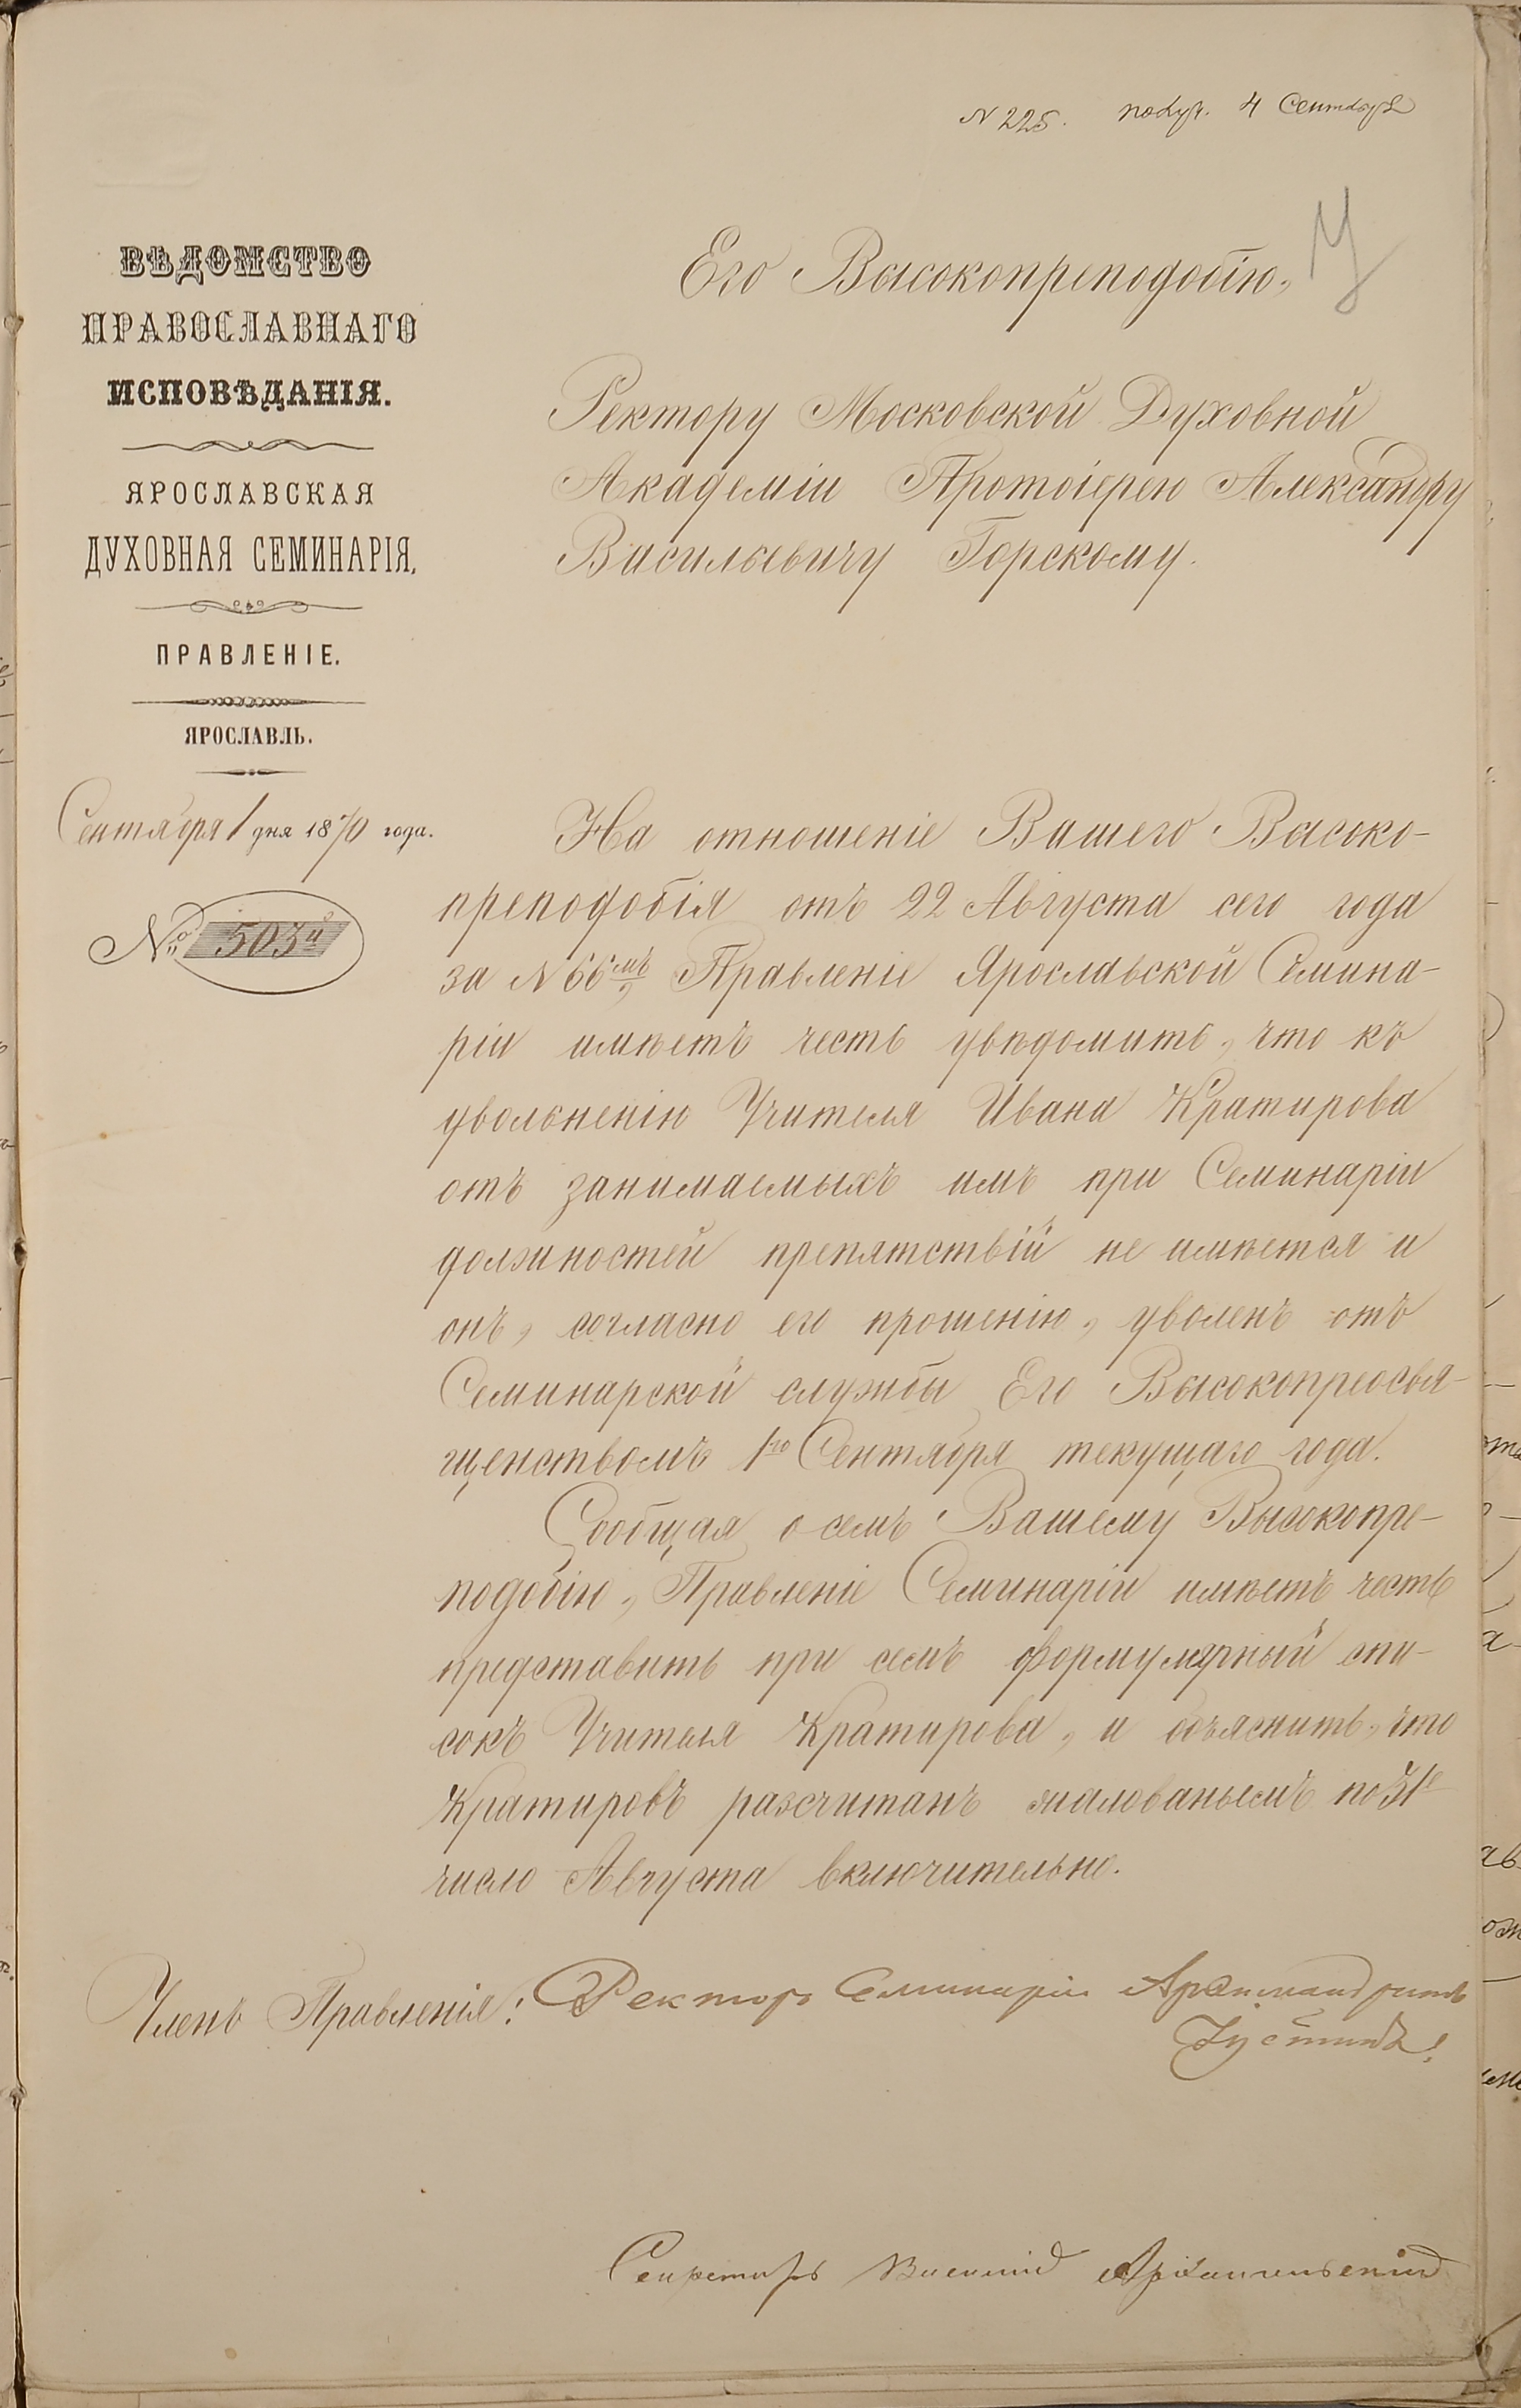 N 225. получ. 4 Сентября
ВѢДОМСТВО
ПРАВОСЛАВНАГО
ИСПОВѢДАНІЯ.
ЯРОСЛАВСКАЯ
ДУХОВНАЯ СЕМИНАРІЯ.
ПРАВЛЕНІЕ.
ЯРОСЛАВЛЬ.
Сентября 1 дня 1870 года.
№ 503й
Его Высокопреподобію,
Ректору Московской Духовной
Академіи Протоіерею Александру
Васильевичу Горскому.
На отношеніе Вашего Высоко-
преподобія отъ 22 Августа сего года
за N 66мъ, Правленіе Ярославской Семина-
ріи имѣетъ честь увѣдомить, что къ
увольненію Учителя Ивана Кратирова
отъ занимаемыхъ имъ при Семинаріи
должностей препятствій не имѣется и
онъ, согласно его прошенію, уволенъ отъ
Семинарской службы Его Высокопреосвя-
щенствомъ 1го Сентября текущаго года.
Сообщая о семъ Вашему Высокопре-
подобію, Правленіе Семинаріи имѣетъ честь
представить при семъ формулярный спи-
сокъ Учителя Кратирова, и объяснить, что
Кратировъ разсчитанъ жалованьемъ по 31е
число Августа включительно.
Членъ Правленія: Ректоръ Семинаріи Архимандритъ
Іустинъ.
Секретарь Василій Архангельскій